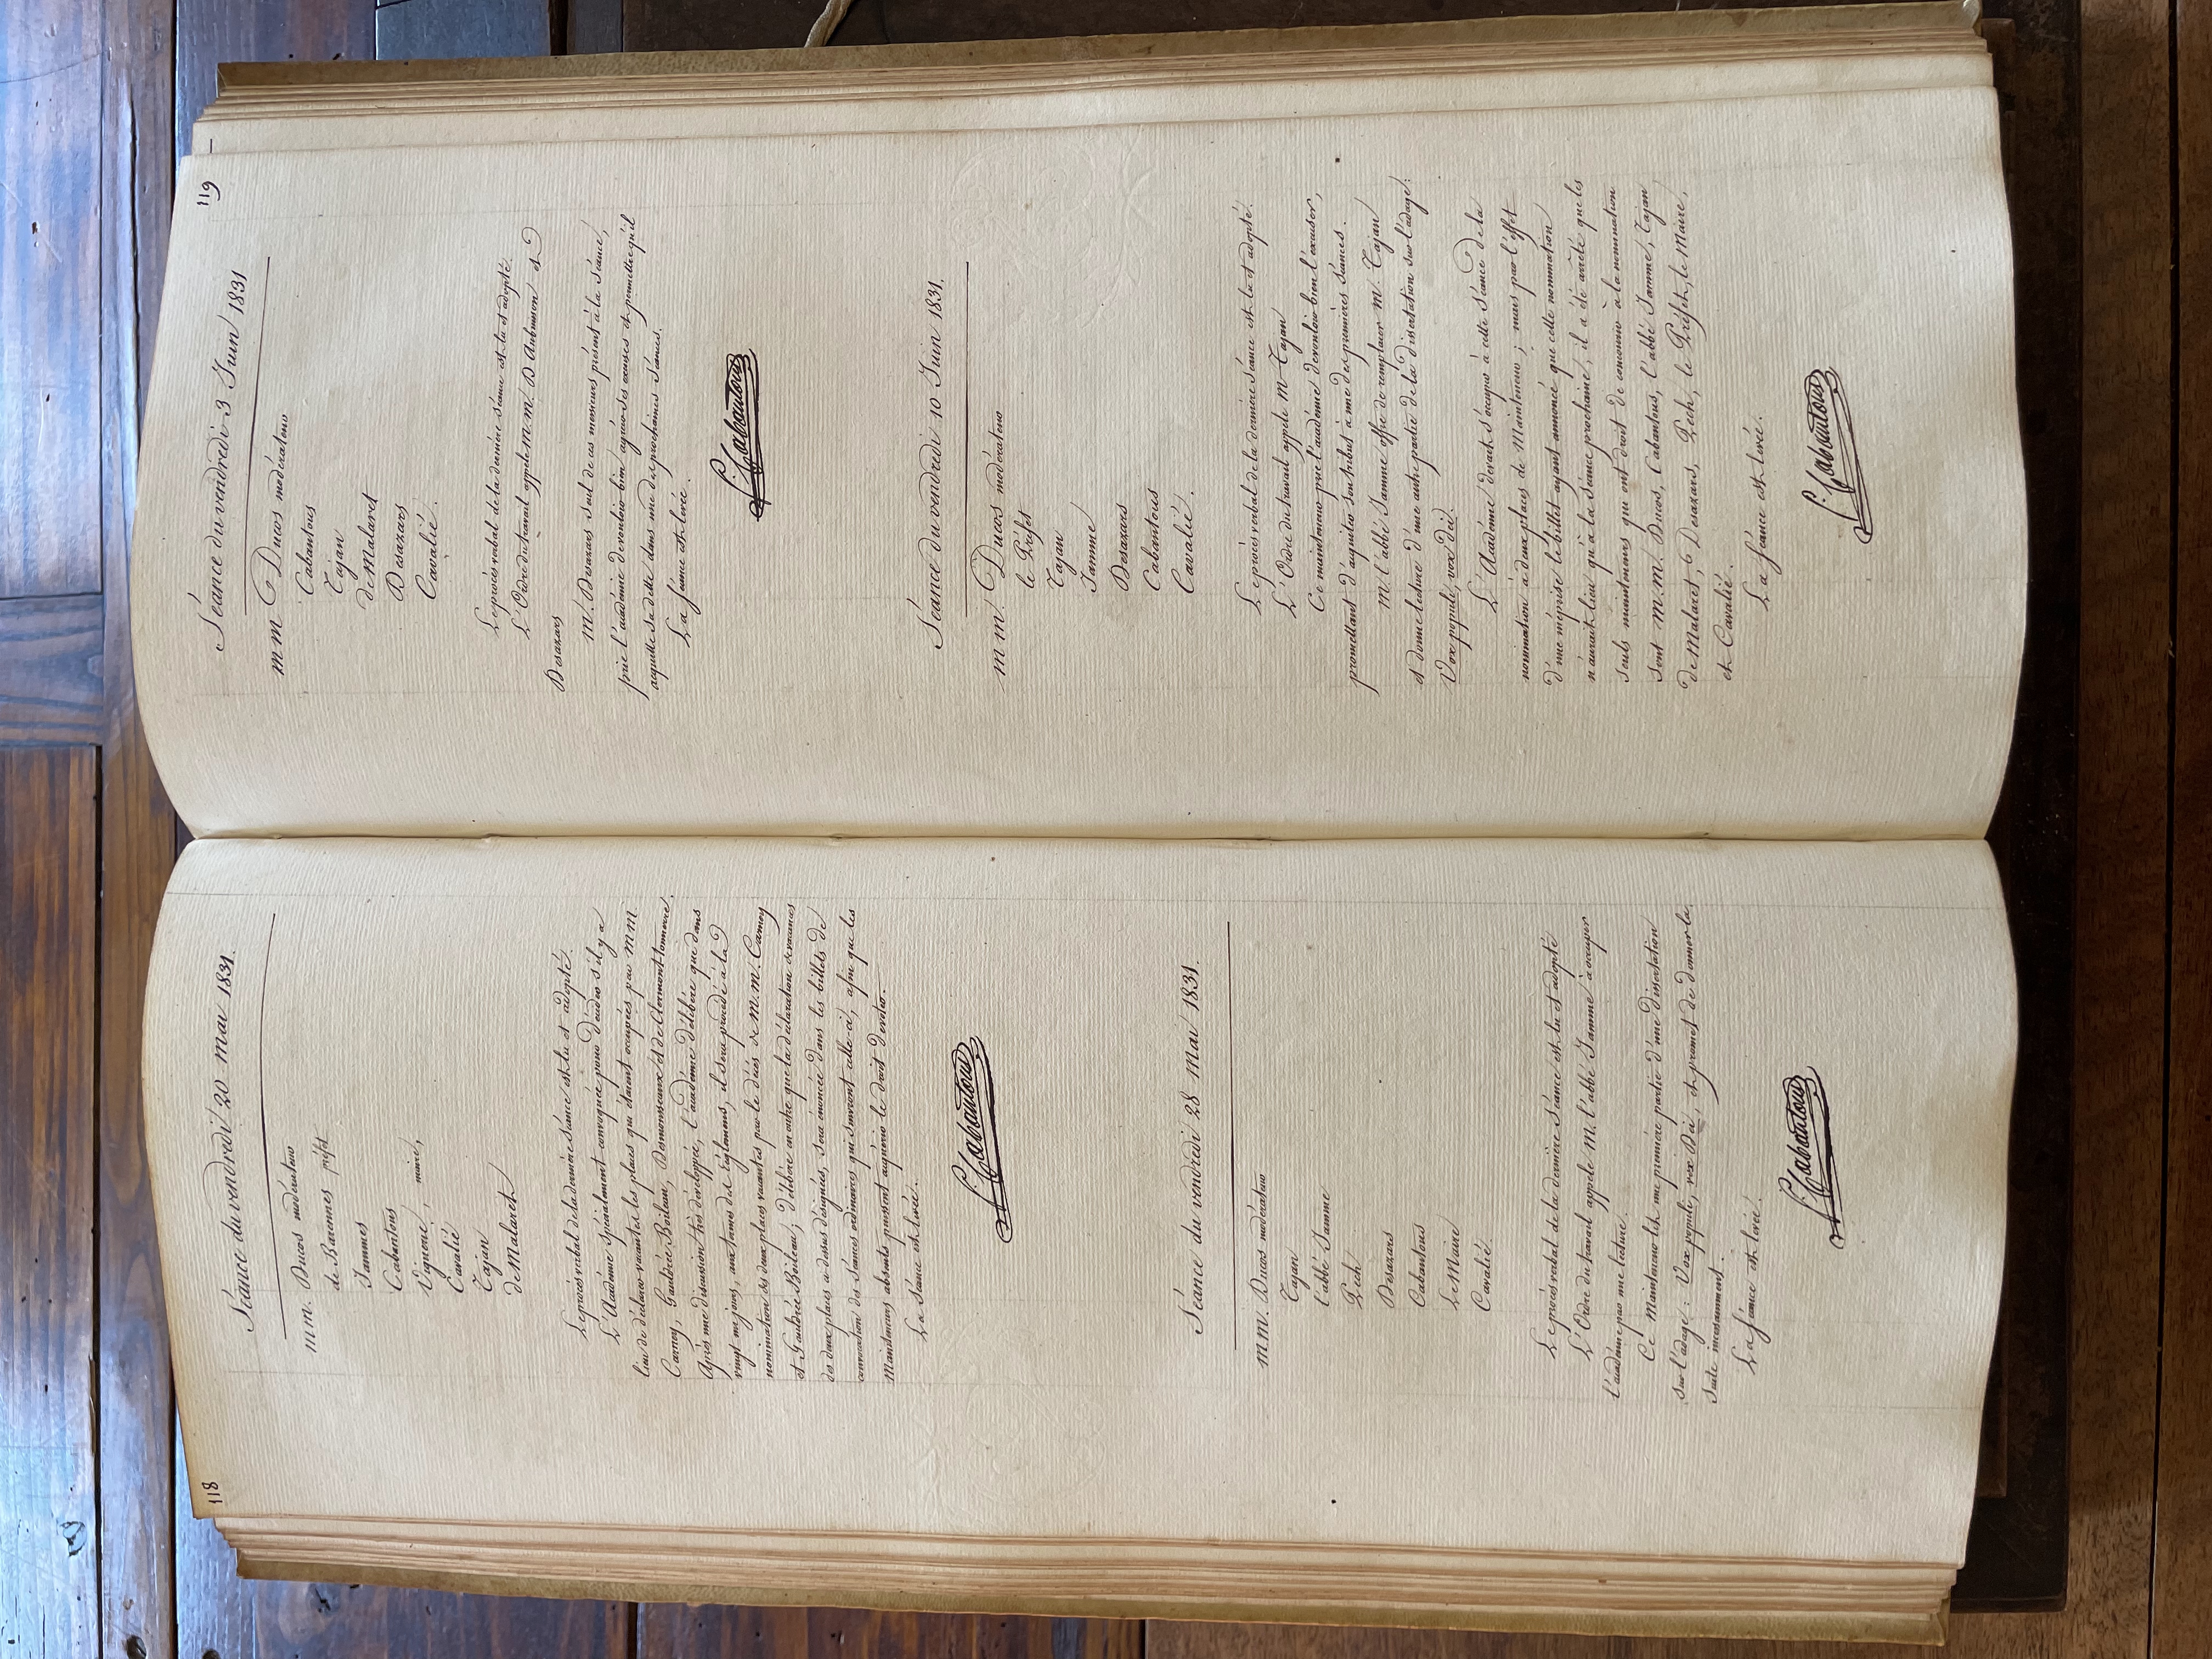 118
Séance du vendredi 20 mai 1831.
m m. Ducos modérateur
de Barennes préfet
Jammes
Cabantous
Viguerie, maire,
Cavalié
Tajan
de Malaret
Le procès verbal de la dernière séance est lu et adopté.
L'Académie spécialement convoquée pour décider s'il y a
lieu de déclarer vacantes les places qui étaient occupées par m m.
Carney, Gauldrée Boileau, Desmousseaux et de Clermont-tonnerre.
Après une discussion très développée, l'académie délibère que dans
vingt un jours, aux termes des Réglemens, il sera procédé à la
nomination des deux places vacantes par le décès de m. m. Carney
et Gauldrée Boileau; délibère en outre que la déclaration de vacances
des deux places ci-dessus désignées, sera énoncée dans les billets de
convocation des séances ordinaires qui suivront celle-ci, afin que les
Mainteneurs absents puissent acquérir le droit de voter.
La Séance est levée.
F. Cabantous
Séance du vendredi 28 mai 1831.
m m. Ducos modérateur
Tajan
l'abbé Jamme
Pech
Desazars
Cabantous
Le Maire
Cavalié.
Le procès verbal de la dernière séance est lu et adopté
L'Ordre du travail appelle M. l'abbé Jamme à occuper
l'académie par une lecture.
Ce Mainteneur lit une première partie d'une dissertation
sur l'adage: Vox populi, vox Dei, et promet de donner la
suite incessamment.
La séance est levée.
F. Cabantous
119
Séance du vendredi 3 Juin 1831
m m Ducos modérateur
Cabantous
Tajan
de Malaret
Desazars
Cavalié.
Le procès verbal de la dernière séance est lu et adopté.
L'Ordre du travail appele m. m. D'Aubuisson et
Desazars
m. Desazars seul de ces messieurs présent à la séance,
prie l'académie de vouloir bien agréer ses excuses et permettre qu'il
acquitte sa dette dans une des prochaines séances.
La séance est levée.
F. Cabantous
Séance du vendredi 10 Juin 1831.
m m. Ducos modérateur
le Préfet
Tajan
Jamme
Desazars
Cabantous
Cavalié.
Le procès verbal de la dernière séance est lu et adopté.
L'Ordre du travail appele m. Tajan
Ce mainteneur prie l'académie de vouloir bien l'excuser,
promettant d'acquitter son tribut à une des premières séances.
m. l'abbé Jamme offre de remplacer m. Tajan
et donne lecture d'une autre partie de la dissertation sur l'adage:
Vox populi, vox Dei.
L'Académie devait s'occuper à cette séance de la
nomination à deux places de Mainteneur; mais par l'effet
d'une méprise le billet ayant annoncé que cette nomination
n'aurait lieu qu'à la séance prochaine, il a été arrêté que les
seuls mainteneurs qui ont droit de concourir à la nomination
sont m. m. Ducos, Cabantous, l'abbé Jamme, Tajan
de Malaret, Desazars, Pech, le Préfet, le Maire,
et Cavalié.
La séance est levée.
F. Cabantous